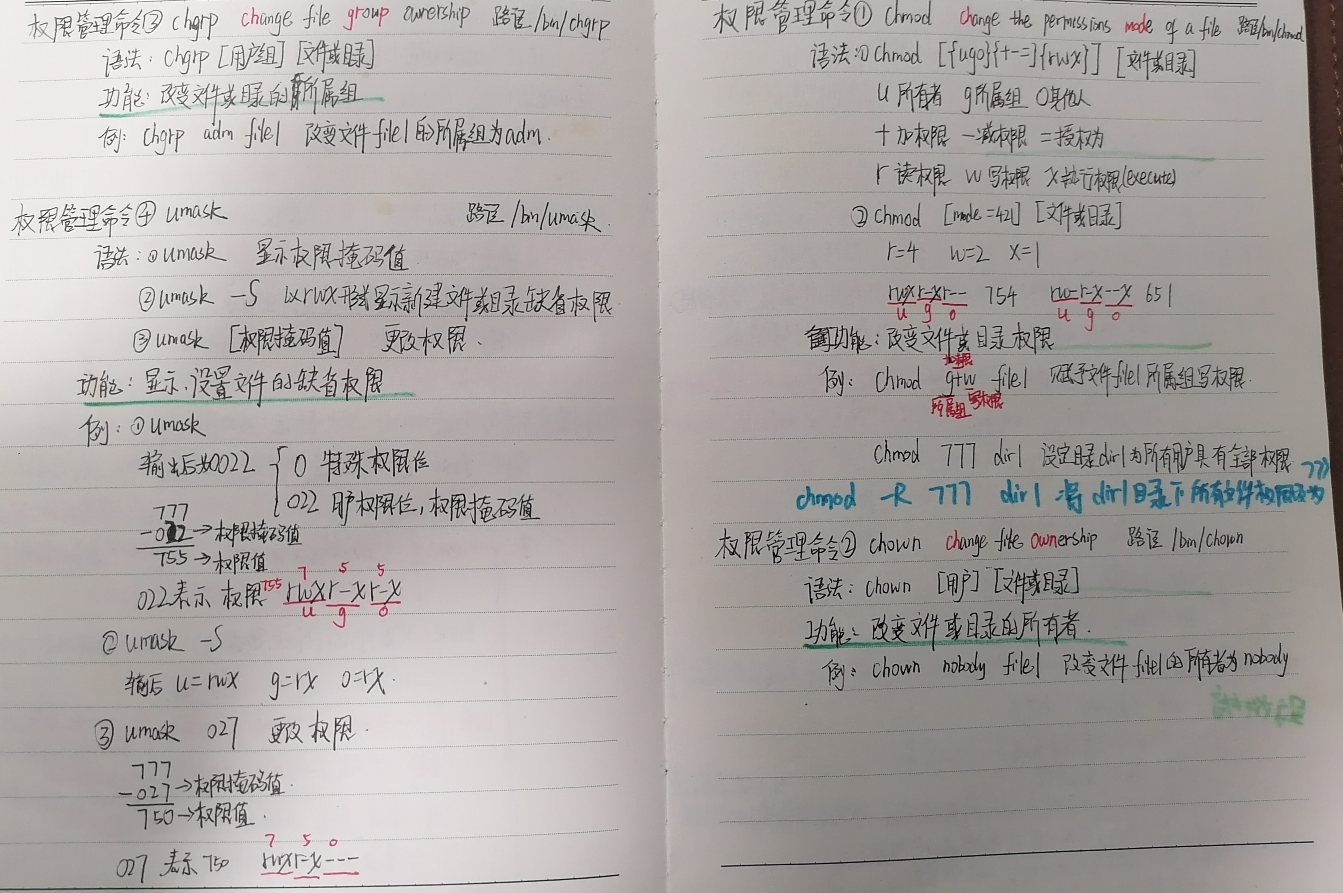 权限管理命令③ chgrp change file group ownership 路径/bin/chgrp
语法: chgrp [用户组] [文件或目录]
功能: 改变文件或目录的所属组
例: chgrp adm file1 改变文件file1的所属组为adm.
权限管理命令④ umask 路径 /bin/umask.
语法: ①umask 显示权限掩码值
②umask -S 以rwx形式显示新建文件或目录缺省权限
③umask [权限掩码值] 更改权限.
功能: 显示、设置文件的缺省权限
例: ①umask
输出后为0022 { 0 特殊权限位
022 用户权限位, 权限掩码值
777
-022→权限掩码值
755→权限值
7 5 5
022表示 权限755 rwxr-xr-x
u g o
②umask -S
输后 u=rwx g=rx o=rx.
③ umask 027 更改权限.
777
-027→权限掩码值.
750→权限值.
7 5 0
027 表示 750 rwxr-x---
权限管理命令① chmod change the permissions mode of a file 路径/bin/chmod
语法:① chmod [{ugo}{+-=}{rwx}] [文件或目录]
u 所有者 g所属组 o其他人
+ 加权限 -减权限 =授权为
r 读权限 w 写权限 x执行权限(execute)
② chmod [mode=421] [文件或目录]
r=4 w=2 x=1
rwxr-xr-- 754 rw-r-x--x 651
u g o u g o
功能: 改变文件或目录权限
加权限
例: chmod g+w file1 赋予文件file1所属组写权限.
所属组 写权限
chmod 777 dir1 设定目录dir1为所有用户具有全部权限
chmod -R 777 dir1 将dir1目录下所有文件权限改为777
权限管理命令② chown change file ownership 路径 /bin/chown
语法: chown [用户] [文件或目录]
功能: 改变文件或目录的所有者.
例: chown nobody file1 改变文件file1的所有者为nobody